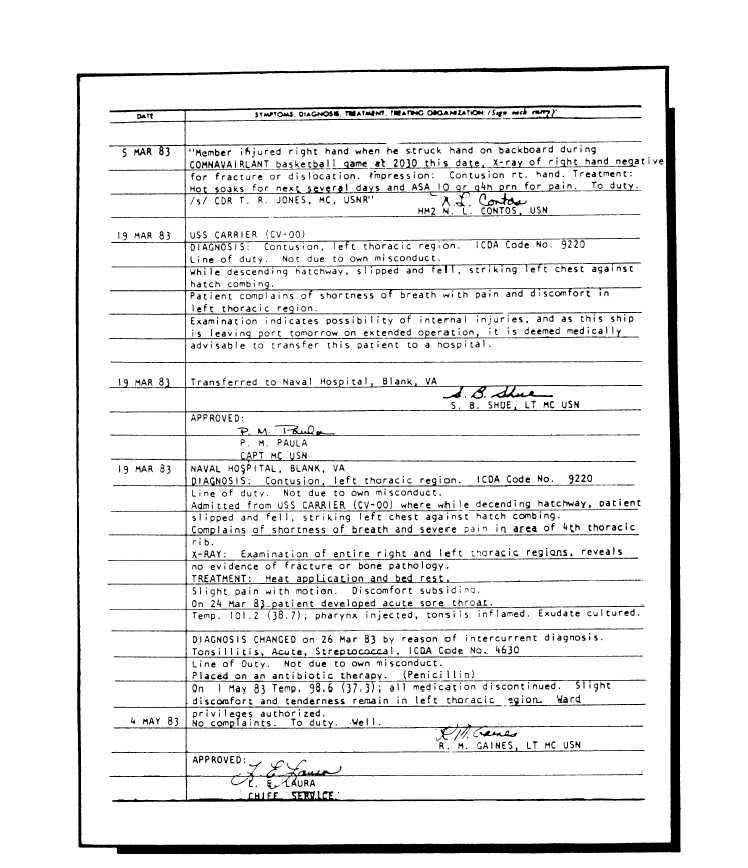 DATE SYMPTOMS, DIAGNOSIS, TREATMENT, TREATING ORGANIZATION (Sign each entry)
5 MAR 83 "Member injured right hand when he struck hand on backboard during
COMNAVAIRLANT basketball game at 2030 this date, X-ray of right hand negative
for fracture or dislocation. Impression: Contusion rt. hand. Treatment:
Hot soaks for next several days and ASA 10 gr q4h prn for pain. To duty.
/s/ CDR T. R. JONES, MC, USNR" N. L. Contos
HM2 N. L. CONTOS, USN
19 MAR 83 USS CARRIER (CV-00)
DIAGNOSIS: Contusion, left thoracic region. ICDA Code No. 9220
Line of duty. Not due to own misconduct.
While descending hatchway, slipped and fell, striking left chest against
hatch combing.
Patient complains of shortness of breath with pain and discomfort in
left thoracic region.
Examination indicates possibility of internal injuries, and as this ship
is leaving port tomorrow on extended operation, it is deemed medically
advisable to transfer this patient to a hospital.
19 MAR 83 Transferred to Naval Hospital, Blank, VA
S. B. Shue
S. B. SHUE, LT MC USN
APPROVED:
P. M. Paula
P. M. PAULA
CAPT MC USN
19 MAR 83 NAVAL HOSPITAL, BLANK, VA
DIAGNOSIS: Contusion, left thoracic region. ICDA Code No. 9220
Line of duty. Not due to own misconduct.
Admitted from USS CARRIER (CV-00) where while decending hatchway, patient
slipped and fell, striking left chest against hatch combing.
Complains of shortness of breath and severe pain in area of 4th thoracic
rib.
X-RAY: Examination of entire right and left thoracic regions, reveals
no evidence of fracture or bone pathology.
TREATMENT: Heat application and bed rest.
Slight pain with motion. Discomfort subsiding.
On 24 Mar 83 patient developed acute sore throat.
Temp. 101.2 (38.7); pharynx injected, tonsils inflamed. Exudate cultured.
DIAGNOSIS CHANGED on 26 Mar 83 by reason of intercurrent diagnosis.
Tonsillitis, Acute, Streptococcal, ICDA Code No. 4630
Line of Duty. Not due to own misconduct.
Placed on an antibiotic therapy. (Penicillin)
On 1 May 83 Temp. 98.6 (37.3); all medication discontinued. Slight
discomfort and tenderness remain in left thoracic egion. Ward
privileges authorized.
4 MAY 83 No complaints. To duty. Well.
R M. Gaines
R. M. GAINES, LT MC USN
APPROVED:
L E Laura
L. E. LAURA
CHIEF SERVICE.